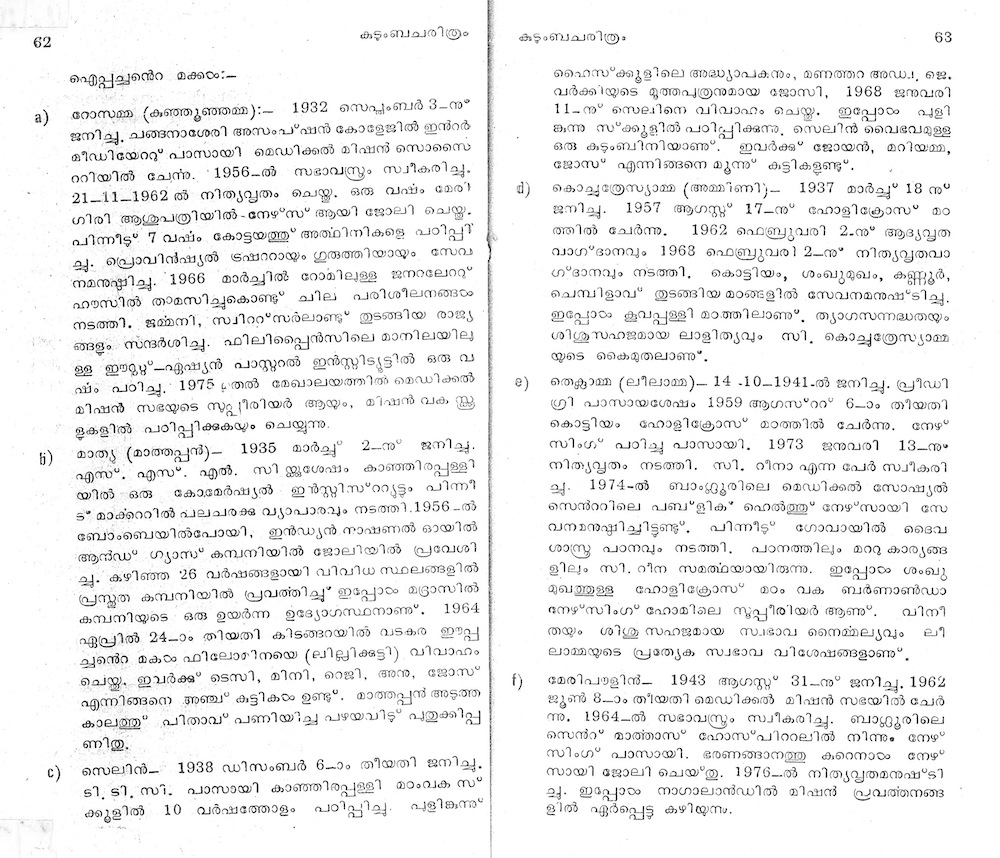 62
കുടുംബചരിത്രം
ഐപ്പച്ചന്റെ മക്കൾ:–
a) റോസമ്മ (കുഞ്ഞൂഞ്ഞമ്മ):– 1932 സെപ്തംബർ 3–നു്
ജനിച്ചു. ചങ്ങനാശേരി അസംപ്ഷൻ കോളേജിൽ ഇൻറർ
മീഡിയേററു് പാസായി മെഡിക്കൽ മിഷൻ സൊസൈ
ററിയിൽ ചേർന്നു. 1956–ൽ സഭാവസ്ത്രം സ്വീകരിച്ചു.
21–11–1962 ൽ നിത്യവൃതം ചെയ്തു. ഒരു വർഷം മേരി
ഗിരി ആശുപത്രിയിൽ നേഴ്സ് ആയി ജോലി ചെയ്തു.
പിന്നീടു് 7 വർഷം കോട്ടയത്തു് അർത്ഥിനികളെ പഠിപ്പി
ച്ചു. പ്രൊവിൻഷ്യൽ ട്രഷററായും ഗുരുത്തിയായും സേവ
നമനുഷ്ഠിച്ചു. 1966 മാർച്ചിൽ റോമിലുള്ള ജനറലേററു്
ഹൗസിൽ താമസിച്ചുകൊണ്ടു് ചില പരിശീലനങ്ങൾ
നടത്തി. ജർമ്മനി, സ്വിററ്സർലാണ്ടു് തുടങ്ങിയ രാജ്യ
ങ്ങളും സന്ദർശിച്ചു. ഫിലിപ്പൈൻസിലെ മാനിലയിലു
ള്ള ഈസ്റ്റു്–ഏഷ്യൻ പാസ്റ്ററൽ ഇൻസ്റ്റിട്യൂട്ടിൽ ഒരു വ
ർഷം പഠിച്ചു. 1975 മുതൽ മേഘാലയത്തിൽ മെഡിക്കൽ
മിഷൻ സഭയുടെ സുപ്പീരിയർ ആയും, മിഷൻ വക സ്കൂ
ളുകളിൽ പഠിപ്പിക്കുകയും ചെയ്യുന്നു.
b) മാത്യു (മാത്തപ്പൻ)– 1935 മാർച്ച് 2–നു് ജനിച്ചു.
എസ്. എസ്. എൽ. സി യ്ക്കുശേഷം കാഞ്ഞിരപ്പള്ളി
യിൽ ഒരു കോമേർഷ്യൽ ഇൻസ്റ്റിസ്ററ്യൂട്ടും പിന്നീ
ട് മാർക്കററിൽ പലചരക്കു വ്യാപാരവും നടത്തി. 1956–ൽ
ബോംബെയിൽപോയി, ഇൻഡ്യൻ നാഷണൽ ഓയിൽ
ആൻഡ് ഗ്യാസ് കമ്പനിയിൽ ജോലിയിൽ പ്രവേശി
ച്ചു. കഴിഞ്ഞ 26 വർഷങ്ങളായി വിവിധ സ്ഥലങ്ങളിൽ
പ്രസ്തുത കമ്പനിയിൽ പ്രവർത്തിച്ചു് ഇപ്പോൾ മദ്രാസിൽ
കമ്പനിയുടെ ഒരു ഉയർന്ന ഉദ്യോഗസ്ഥനാണ്. 1964
ഏപ്രിൽ 24–ാം തിയതി കിടങ്ങറയിൽ വടകര ഈപ്പ
ച്ചന്റെ മകൾ ഫിലോമിനയെ (ലില്ലിക്കുട്ടി) വിവാഹം
ചെയ്തു. ഇവർക്കു് ടെസി, മിനി, റെജി, അനു, ജോസ്
എന്നിങ്ങനെ അഞ്ചു് കുട്ടികൾ ഉണ്ട്. മാത്തപ്പൻ അടുത്ത
കാലത്തു് പിതാവ് പണിയിച്ച പഴയവീട് പുതുക്കിപ്പ
ണിതു.
c) സെലിൻ– 1938 ഡിസംബർ 6–ാം തീയതി ജനിച്ചു.
ടി. ടി. സി. പാസായി കാഞ്ഞിരപ്പള്ളി മഠംവക സ്
ക്കൂളിൽ 10 വർഷത്തോളം പഠിപ്പിച്ചു. പുളിങ്കുന്നു്
കുടുംബചരിത്രം
63
ഹൈസ്ക്കൂളിലെ അദ്ധ്യാപകനും, മണത്തറ അഡ്വ. ജെ.
വർക്കിയുടെ മൂത്തപുത്രനുമായ ജോസി, 1968 ജനുവരി
11–നു് സെലിനെ വിവാഹം ചെയ്തു. ഇപ്പോൾ പുളി
ങ്കുന്നു സ്ക്കൂളിൽ പഠിപ്പിക്കുന്നു. സെലിൻ വൈഭവമുള്ള
ഒരു കുടുംബിനിയാണു്. ഇവർക്ക് ജോയൻ, മറിയമ്മ,
ജോസ് എന്നിങ്ങനെ മൂന്നു് കുട്ടികളുണ്ടു്.
d) കൊച്ചുത്രേസ്യാമ്മ (അമ്മിണി)– 1937 മാർച്ചു് 18 നു്
ജനിച്ചു. 1957 ആഗസ്റ്റ് 17–നു് ഹോളിക്രോസ് മഠ
ത്തിൽ ചേർന്നു. 1962 ഫെബ്രുവരി 2–നു് ആദ്യവൃത
വാഗ്ദാനവും 1968 ഫെബ്രുവരി 2–നു് നിത്യവൃതവാ
ഗ്ദാനവും നടത്തി. കൊട്ടിയം, ശംഖുമുഖം, കണ്ണൂർ,
ചെമ്പിളാവ് തുടങ്ങിയ മഠങ്ങളിൽ സേവനമനുഷ്ടിച്ചു.
ഇപ്പോൾ കൂവപ്പള്ളി മഠത്തിലാണു്. ത്യാഗസന്നദ്ധതയും
ശിശുസഹജമായ ലാളിത്യവും സി. കൊച്ചുത്രേസ്യാമ്മ
യുടെ കൈമുതലാണു്.
e) തെക്ലാമ്മ (ലീലാമ്മ)– 14-10–1941-ൽ ജനിച്ചു. പ്രീഡി
ഗ്രി പാസായശേഷം 1959 ആഗസ്ററ് 6–ാം തീയതി
കൊട്ടിയം ഹോളിക്രോസ് മഠത്തിൽ ചേർന്നു. നേഴ്
സിംഗ് പഠിച്ചു പാസായി. 1973 ജനുവരി 13–നു്
നിത്യവൃതം നടത്തി. സി. റീനാ എന്ന പേർ സ്വീകരി
ച്ചു. 1974–ൽ ബാംഗ്ലൂരിലെ മെഡിക്കൽ സോഷ്യൽ
സെൻററിലെ പബ്ളിക് ഹെൽത്തു് നേഴ്സായി സേ
വനമനുഷ്ഠിച്ചിട്ടുണ്ടു്. പിന്നീടു് ഗോവായിൽ ദൈവ
ശാസ്ത്ര പഠനവും നടത്തി. പഠനത്തിലും മററു കാര്യങ്ങ
ളിലും സി. റീന സമർത്ഥയായിരുന്നു. ഇപ്പോൾ ശംഖു
മുഖത്തുള്ള ഹോളിക്രോസ് മഠം വക ബർണാണ്ഡാ
നേഴ്സിംഗ് ഹോമിലെ സൂപ്പീരിയർ ആണു്. വിനീ
തയും ശിശു സഹജമായ സ്വഭാവ നൈർമ്മല്യവും ലീ
ലാമ്മയുടെ പ്രത്യേക സ്വഭാവ വിശേഷങ്ങളാണു്.
f) മേരിപൗളിൻ– 1943 ആഗസ്റ്റ് 31–നു് ജനിച്ചു. 1962
ജൂൺ 8–ാം തീയതി മെഡിക്കൽ മിഷൻ സഭയിൽ ചേർ
ന്നു. 1964–ൽ സഭാവസ്ത്രം സ്വീകരിച്ചു. ബാഗ്ലൂരിലെ
സെൻറ് മാർത്താസ് ഹോസ്പിററലിൽ നിന്നും നേഴ്
സിംഗ് പാസായി. ഭരണങ്ങാനത്തു കുറെനാൾ നേഴ്
സായി ജോലി ചെയ്തു. 1976–ൽ നിത്യവൃതമനുഷ്ടി
ച്ചു. ഇപ്പോൾ നാഗാലാൻഡിൽ മിഷൻ പ്രവർത്തനങ്ങ
ളിൽ ഏർപ്പെട്ടു കഴിയുന്നു.